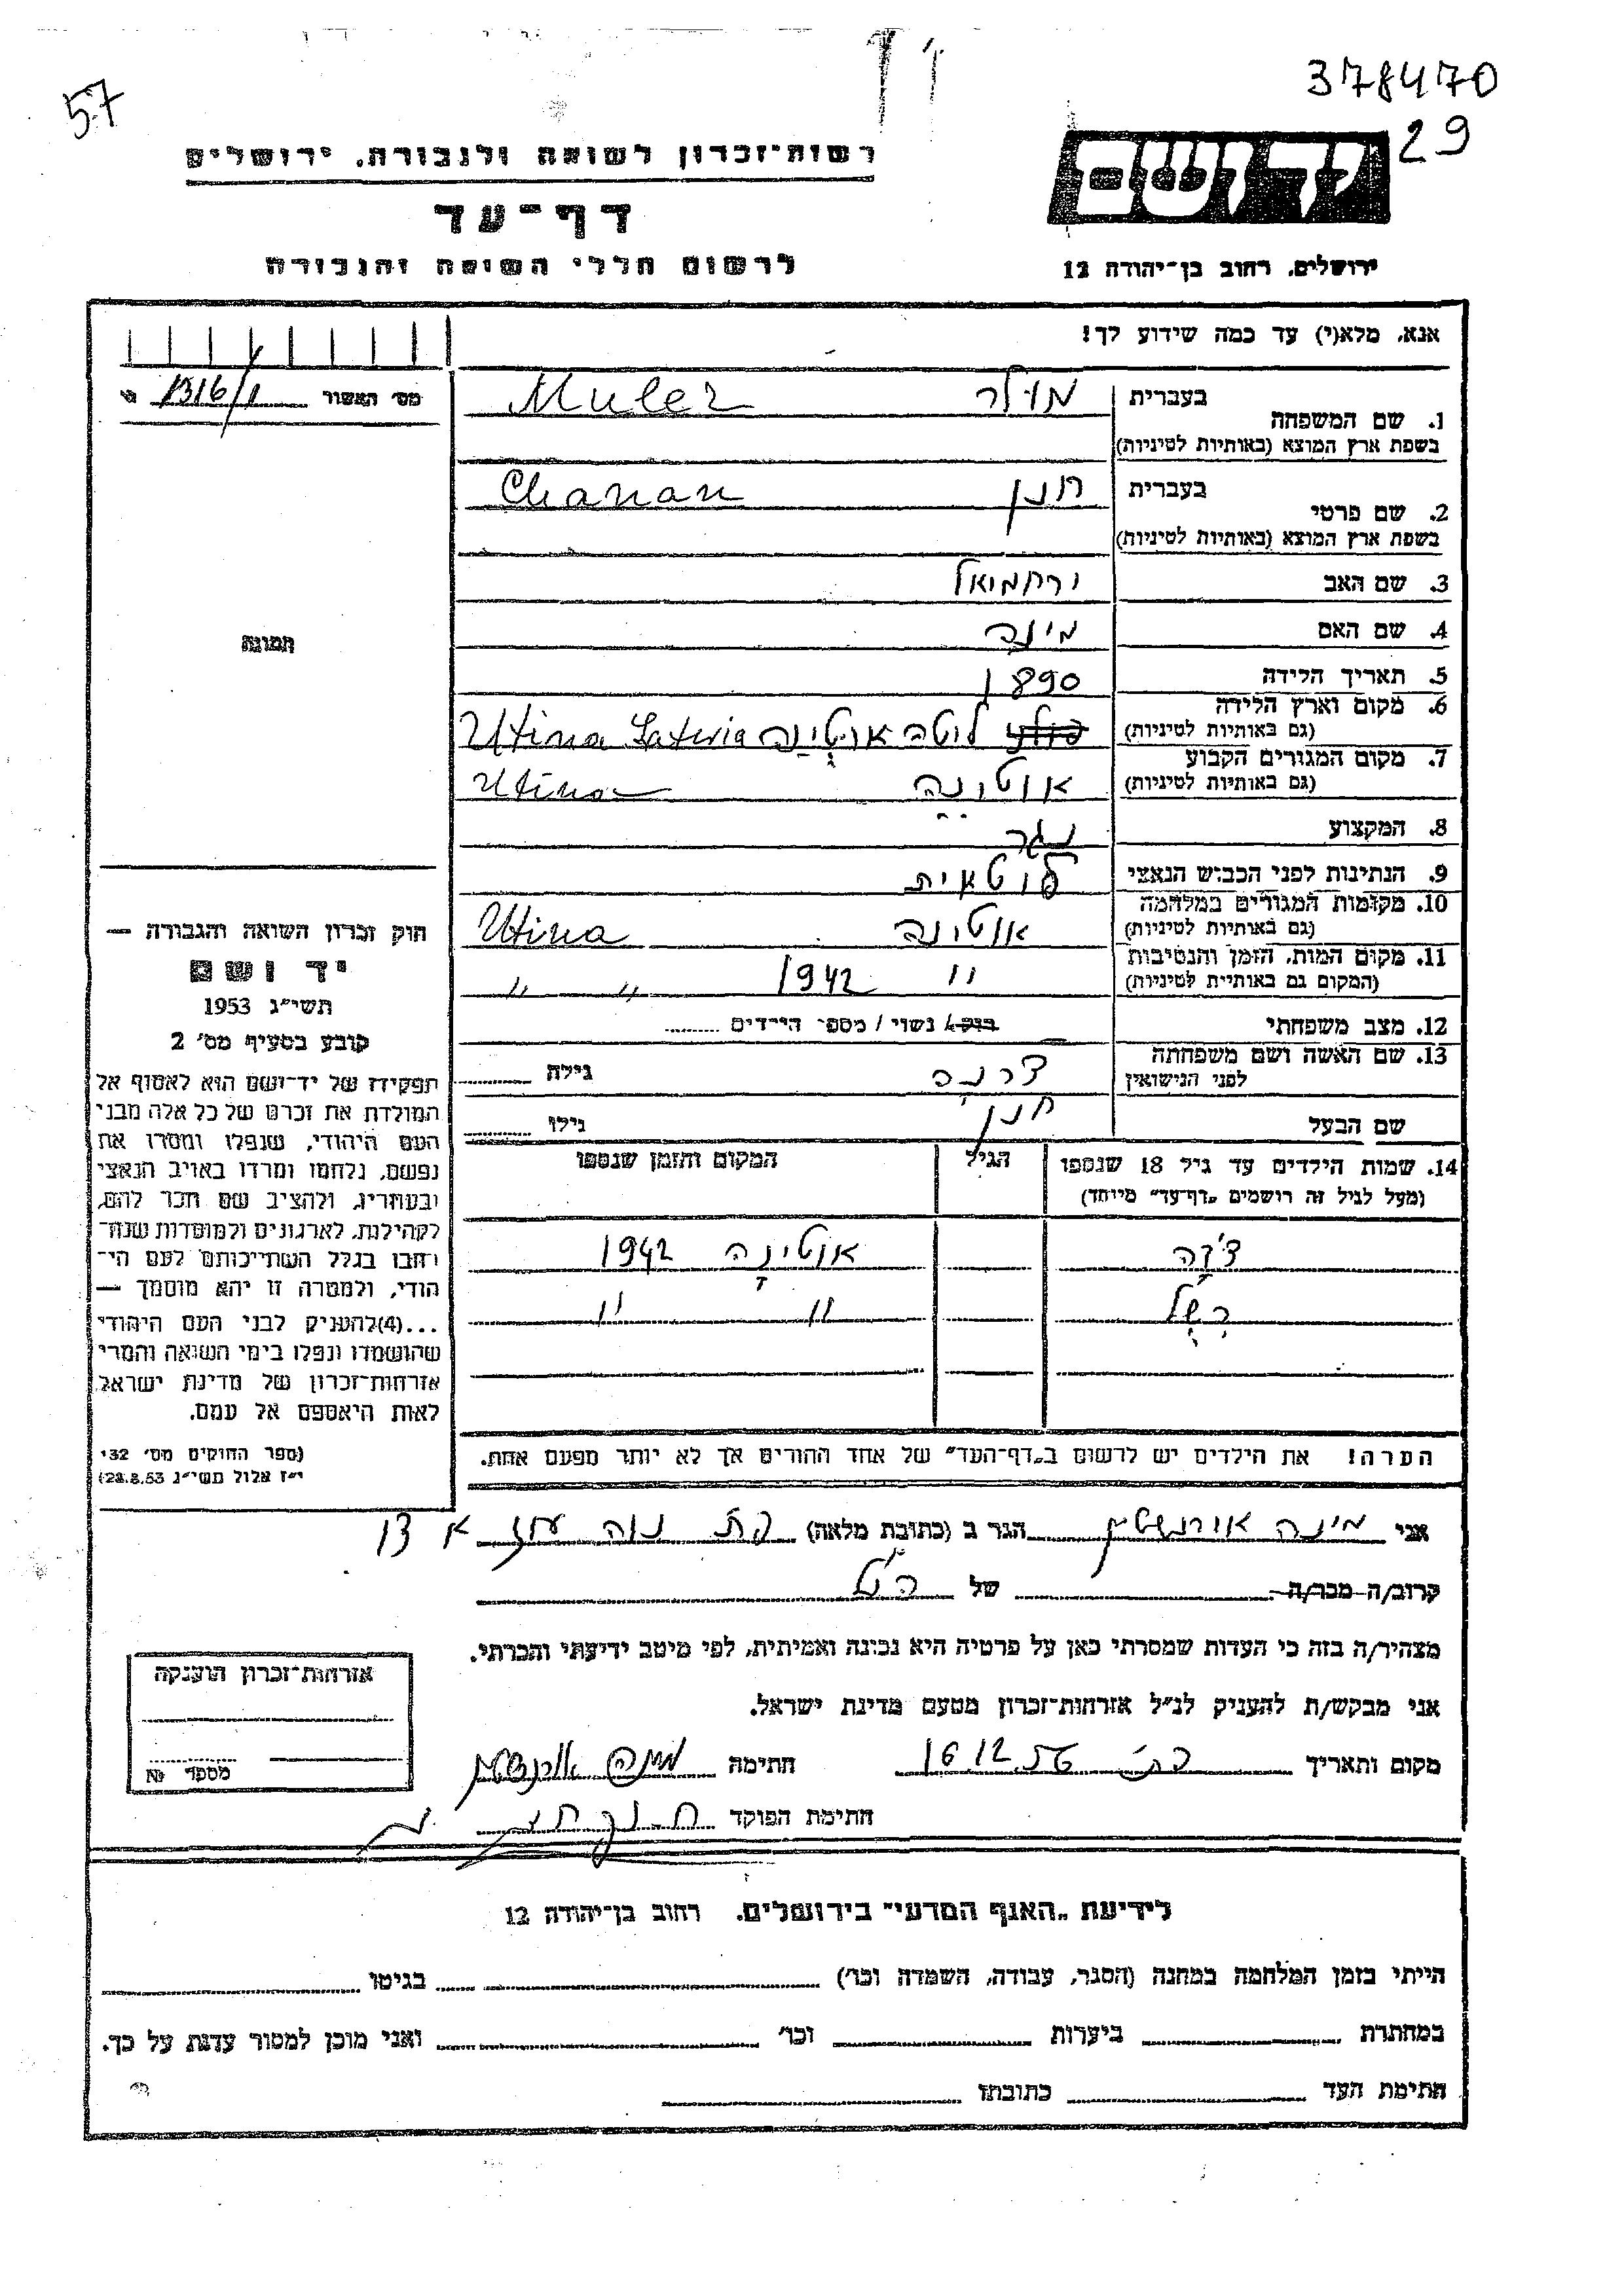 378470
57
29
רשות־זכרון לשואה ולגבורה, ירושלים
דף־עד
לרשום חללי השואה והגבורה
יד ושם
ירושלים, רחוב בן־יהודה 12
אנא, מלא(י) עד כמה שידוע לך!
מס' האשור 1316/1
1. שם המשפחה בעברית מולר Muler
בשפת ארץ המוצא (באותיות לטיניות)
2. שם פרטי בעברית חנן Chanan
בשפת ארץ המוצא (באותיות לטיניות)
3. שם האב ירחמיאל
4. שם האם מינה
תמונה
5. תאריך הלידה 1890
6. מקום וארץ הלידה ליטה אוטינה Utina Latevia
(גם באותיות לטיניות)
7. מקום המגורים הקבוע אוטינה Utina
(גם באותיות לטיניות)
8. המקצוע נגר
9. הנתינות לפני הכבוש הנאצי ליטאית
10. מקומות המגורים במלחמה אוטינה Utina
(גם באותיות לטיניות)
11. מקום המות, הזמן והנסיבות " 1942 " "
(המקום גם באותיות לטיניות)
12. מצב משפחתי רווק/ נשוי / מספר הילדים
13. שם האשה ושם משפחתה גילה
לפני הנישואין
שם הבעל חנן גילו
14. שמות הילדים עד גיל 18 שנספו הגיל המקום והזמן שנספו
(מעל לגיל זה רושמים „דף־עד" מיוחד)
אוטינה 1942
" "
הערה! את הילדים יש לרשום ב„דף־העד" של אחד ההורים אך לא יותר מפעם אחת.
חוק זכרון השואה והגבורה —
יד ושם
תשי"ג 1953
קובע בסעיף מס' 2
תפקידו של יד־ושם הוא לאסוף אל
המולדת את זכרם של כל אלה מבני
העם היהודי, שנפלו ומסרו את
נפשם, נלחמו ומרדו באויב הנאצי
ובעוזריו, ולהציב שם וזכר להם,
לקהילות, לארגונים ולמוסדות שנח־
רבו בגלל השתייכותם לעם הי־
הודי, ולמטרה זו יהא מוסמך —
...(4)להעניק לבני העם היהודי
שהושמדו ונפלו בימי השואה והמרי
אזרחות־זכרון של מדינת ישראל,
לאות היאספם אל עמם.
(ספר החוקים מס' 132
י"ז אלול תשי"ג 28.8.53)
אני מינה אורנשטין הגר ב (כתובת מלאה)
קרוב/ה מכר/ה של
מצהיר/ה בזה כי העדות שמסרתי כאן על פרטיה היא נכונה ואמיתית, לפי מיטב ידיעתי והכרתי.
אני מבקש/ת להעניק לנ"ל אזרחות־זכרון מטעם מדינת ישראל.
מקום ותאריך 16.12.56 חתימה מינה אורנשטין
חתימת הפוקד
אזרחות־זכרון הוענקה
מספר №
לידיעת „האגף המדעי" בירושלים, רחוב בן־יהודה 12
הייתי בזמן המלחמה במחנה (הסגר, עבודה, השמדה וכו') בגיטו
במחתרת ביערות וכו' ואני מוכן למסור עדות על כך.
חתימת העד כתובתו